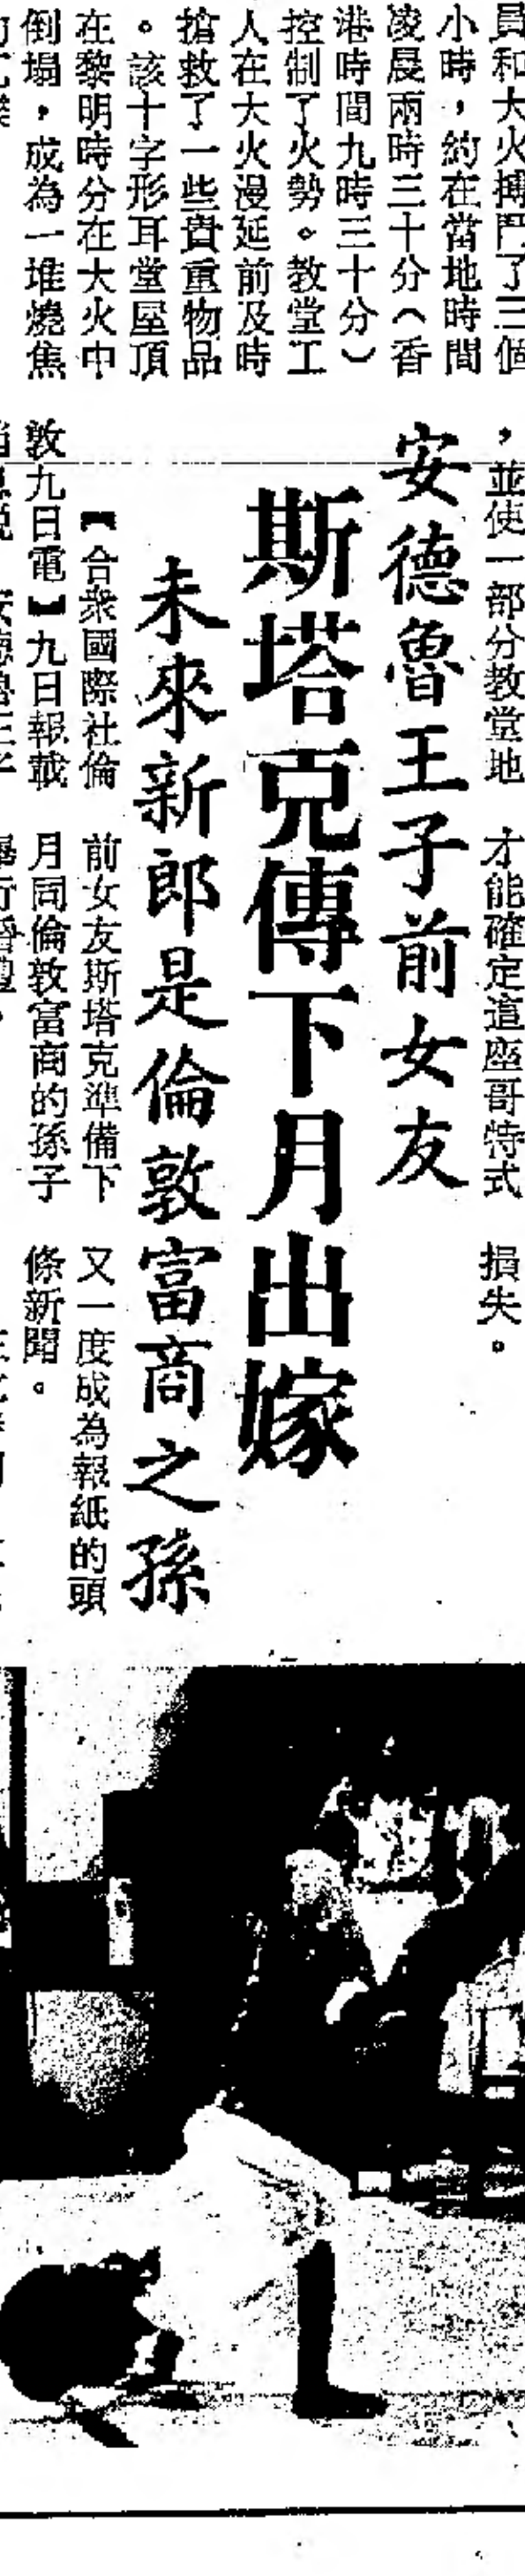 員和大火搏鬥了三個
小時，約在當地時間
凌晨兩時三十分（香
港時間九時三十分）
控制了火勢。教堂工
人在大火漫延前及時
搶救了一些貴重物品
。該十字形耳堂屋頂
在黎明時分在大火中
倒塌，成為一堆燒焦
，並使一部分教堂地
才能確定這座哥特式
損失。
安德魯王子前女友
斯塔克傳下月出嫁
未來新郎是倫敦富商之孫
【合衆國際社倫
敦九日電】九日報載
前女友斯塔克準備下
月同倫敦富商的孫子
舉行婚禮。
又一度成為報紙的頭
條新聞。